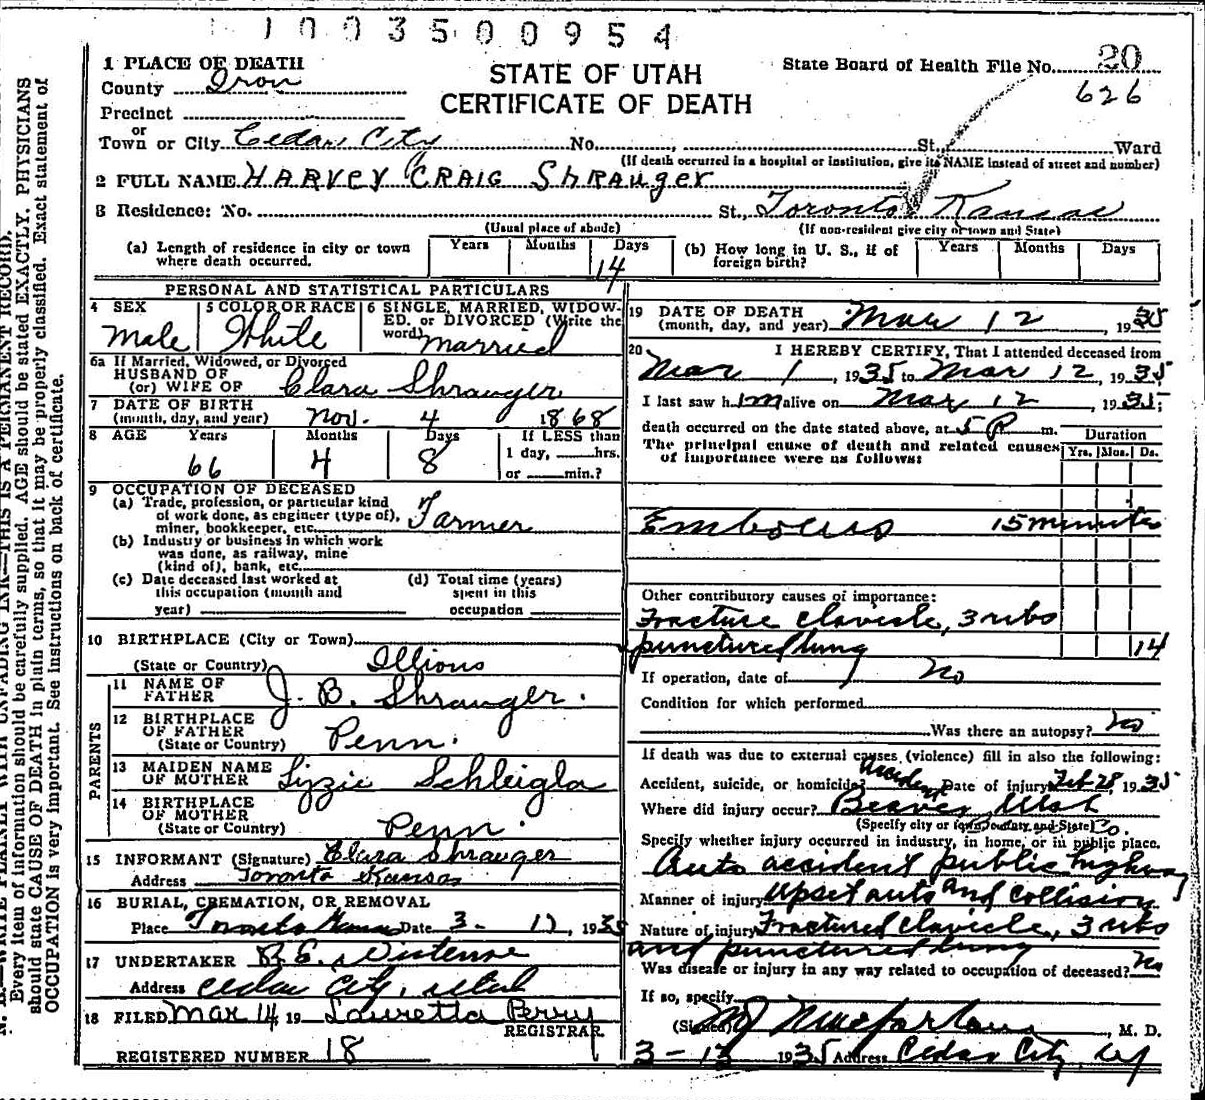 1003500954
1 PLACE OF DEATH
County Iron
Precinct
or
Town or City Cedar City No. , St., Ward
STATE OF UTAH
CERTIFICATE OF DEATH
State Board of Health File No. 20
626
(If death occurred in a hospital or institution, give its NAME instead of street and number)
2 FULL NAME HARVEY CRAIG Shrauger
3 Residence: No. St., Toronto Kansas
(Usual place of abode) (If non-resident give city or town and State)
(a) Length of residence in city or town where death occurred. Years Months Days 14
(b) How long in U. S., if of foreign birth? Years Months Days
PERSONAL AND STATISTICAL PARTICULARS
4 SEX Male
5 COLOR OR RACE White
6 SINGLE, MARRIED, WIDOWED, or DIVORCED (Write the word) married
6a If Married, Widowed, or Divorced
HUSBAND OF
(or) WIFE OF Clara Shrauger
7 DATE OF BIRTH
(month, day, and year) Nov. 4 1868
8 AGE Years Months Days If LESS than
66 4 8 1 day, hrs.
or min.?
9 OCCUPATION OF DECEASED
(a) Trade, profession, or particular kind
of work done, as engineer (type of),
miner, bookkeeper, etc. Farmer
(b) Industry or business in which work
was done, as railway, mine
(kind of), bank, etc.
(c) Date deceased last worked at
this occupation (month and
year)
(d) Total time (years)
spent in this
occupation
10 BIRTHPLACE (City or Town)
(State or Country) Illions
PARENTS
11 NAME OF
FATHER J. B. Shrauger.
12 BIRTHPLACE
OF FATHER
(State or Country) Penn.
13 MAIDEN NAME
OF MOTHER Lizzie Schleigla
14 BIRTHPLACE
OF MOTHER
(State or Country) Penn.
15 INFORMANT (Signature) Clara Shrauger
Address Toronto Kansas
16 BURIAL, CREMATION, OR REMOVAL
Place Toronto Kansas Date 3- , 1935
17 UNDERTAKER
Address Cedar City, Utah
18 FILED Mar 14 19 Lauretta Perry
REGISTRAR
REGISTERED NUMBER 18
19 DATE OF DEATH
(month, day, and year) Mar 12 , 1935
20 I HEREBY CERTIFY, That I attended deceased from
Mar 1 , 1935 to Mar 12, 1935
I last saw him alive on Mar 12 , 1935;
death occurred on the date stated above, at 5 P. m.
The principal cause of death and related causes
of importance were as follows:
Duration
Yrs. Mos. Ds.
Embolus 15 minutes
Other contributory causes of importance:
Fracture clavicle, 3 ribs
punctured lung 14
If operation, date of No
Condition for which performed
Was there an autopsy? No
If death was due to external causes (violence) fill in also the following:
Accident, suicide, or homicide? Accident Date of injury Feb 28, 1935
Where did injury occur? Beaver Utah Co.
(Specify city or town, county, and State)
Specify whether injury occurred in industry, in home, or in public place.
Auto accident public highway
Manner of injury Upset auto and collision
Nature of injury Fractured clavicle, 3 ribs
and punctured lung
Was disease or injury in any way related to occupation of deceased? No
If so, specify
(Signed) M J Macfarlane, M. D.
3-13 1935 Address Cedar City, Ut
N. B.—WRITE PLAINLY WITH UNFADING INK—THIS IS A PERMANENT RECORD.
Every item of information should be carefully supplied. AGE should be stated EXACTLY. PHYSICIANS
should state CAUSE OF DEATH in plain terms, so that it may be properly classified. Exact statement of
OCCUPATION is very important. See instructions on back of certificate.